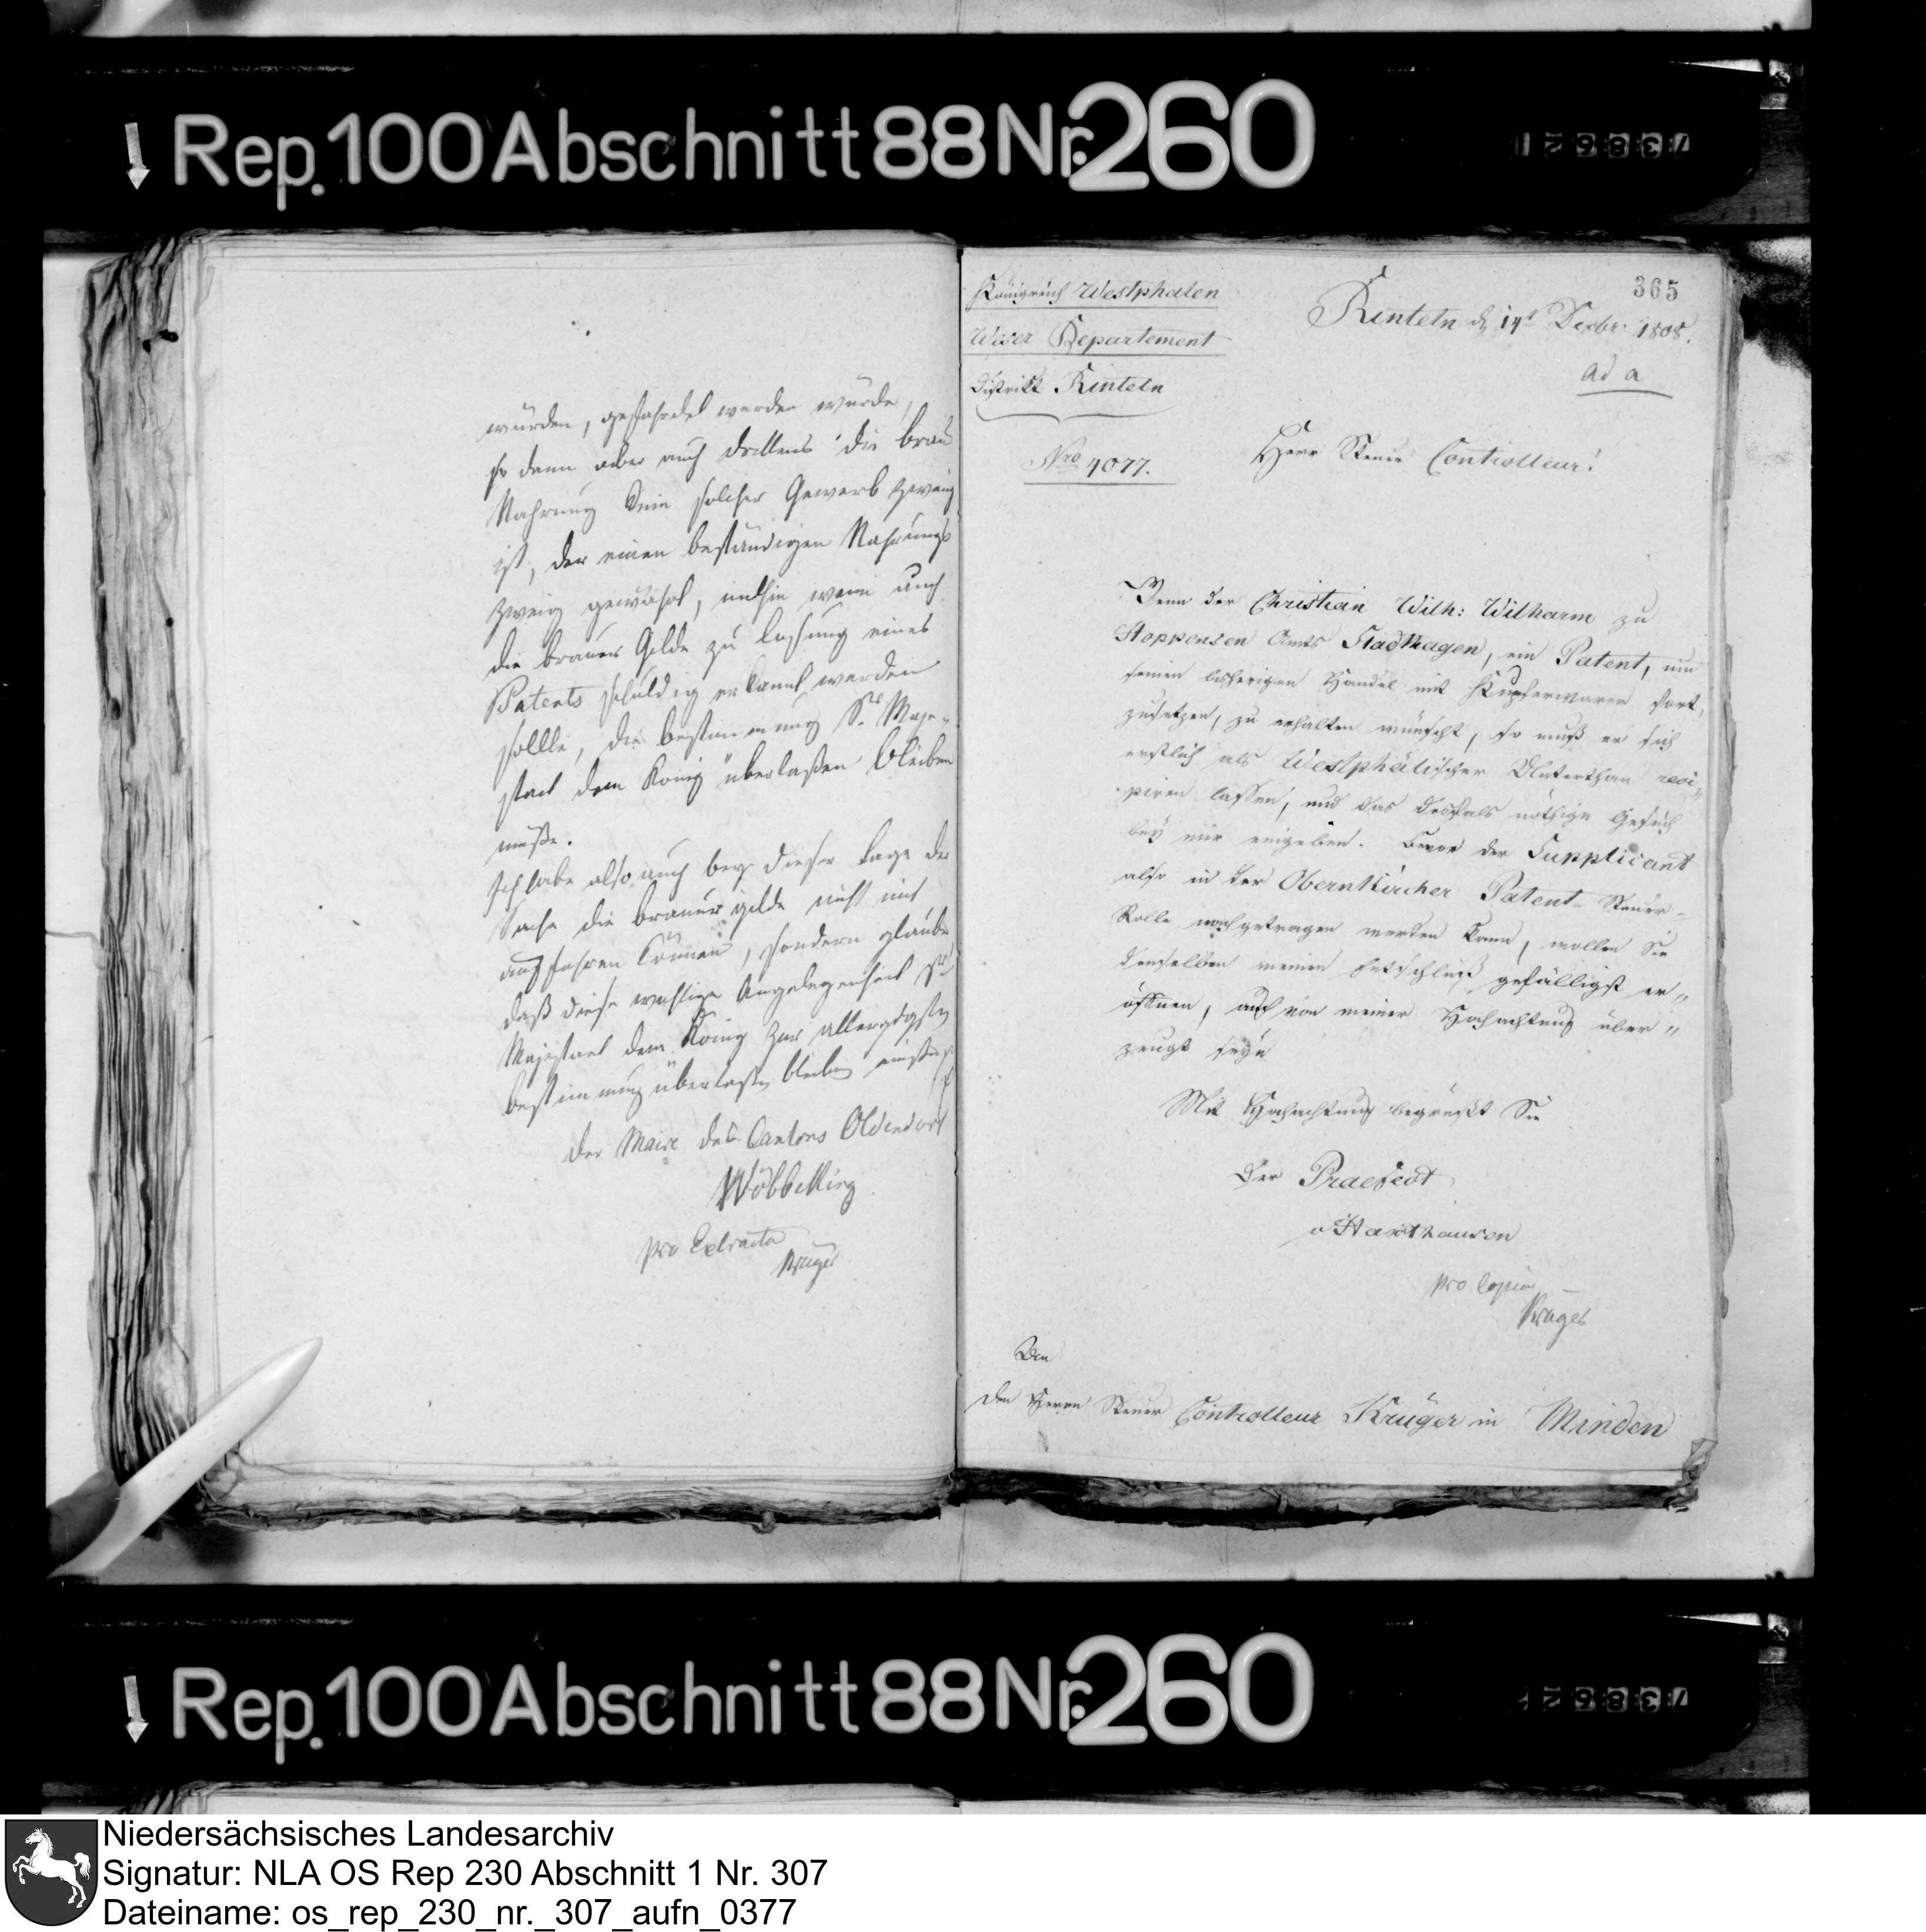 Rep. 100 Abschnitt 88 Nr. 260
würden, gefährdet werden würde,
so dann aber auch drittens die brau
Nahrung kein solcher Gewerb zweig
ist, der einen beständigen Nahrungs
zweig gewährt, mithin wenn auch
die brauer Gilde zu lösung eines
Patents schuldig erkannt werden
sollte, die bestimmung Sr. Maje-
staet dem König überlaßen bleiben
müße.
Ich habe also auch bey dieser Lage der
Sache die brauer gilde nicht mit
auf führen können, sondern glaube
daß diese wichtige Angelegenheit Sr
Majestaet dem König zur allergdgsten
bestimmung überlaßen bleiben müße
Der Maire des Cantons Oldendorf
Wöbbeking
pro Extractu
Krüger
365
Königreich Westphalen
Weser Departement
District Rinteln
Nro 4077.
Rinteln d 14t Decbr 1808.
ad a
Herr Steuer Controlleur!
Wenn der Christian Wilh: Wilharm zu
Hoppensen Amts Stadthagen, ein Patent, um
seinen bisherigen Handel mit Kupferwaren fort,
zusetzen, zu erhalten wünscht, so muß er sich
erstlich als Westphälischer Unterthan reci„
piren lassen, und das desfals nöthige Gesuch
bey mir eingeben. Bevor der Supplicant
also in der Obernkircher Patent-Steuer-
Rolle nachgetragen werden kann, wollen Sie
demselben meinen Entschluß gefälligst er„
öffnen, auch von meiner Hochachtung über„
zeugt seyn
Mit Hochachtung begrüßt Sie
Der Praefect
v Haxthausen
pro Copia
Krüger
An
den Herrn Steuer Controlleur Krüger in Minden
Rep. 100 Abschnitt 88 Nr. 260
Niedersächsisches Landesarchiv
Signatur: NLA OS Rep 230 Abschnitt 1 Nr. 307
Dateiname: os_rep_230_nr._307_aufn_0377